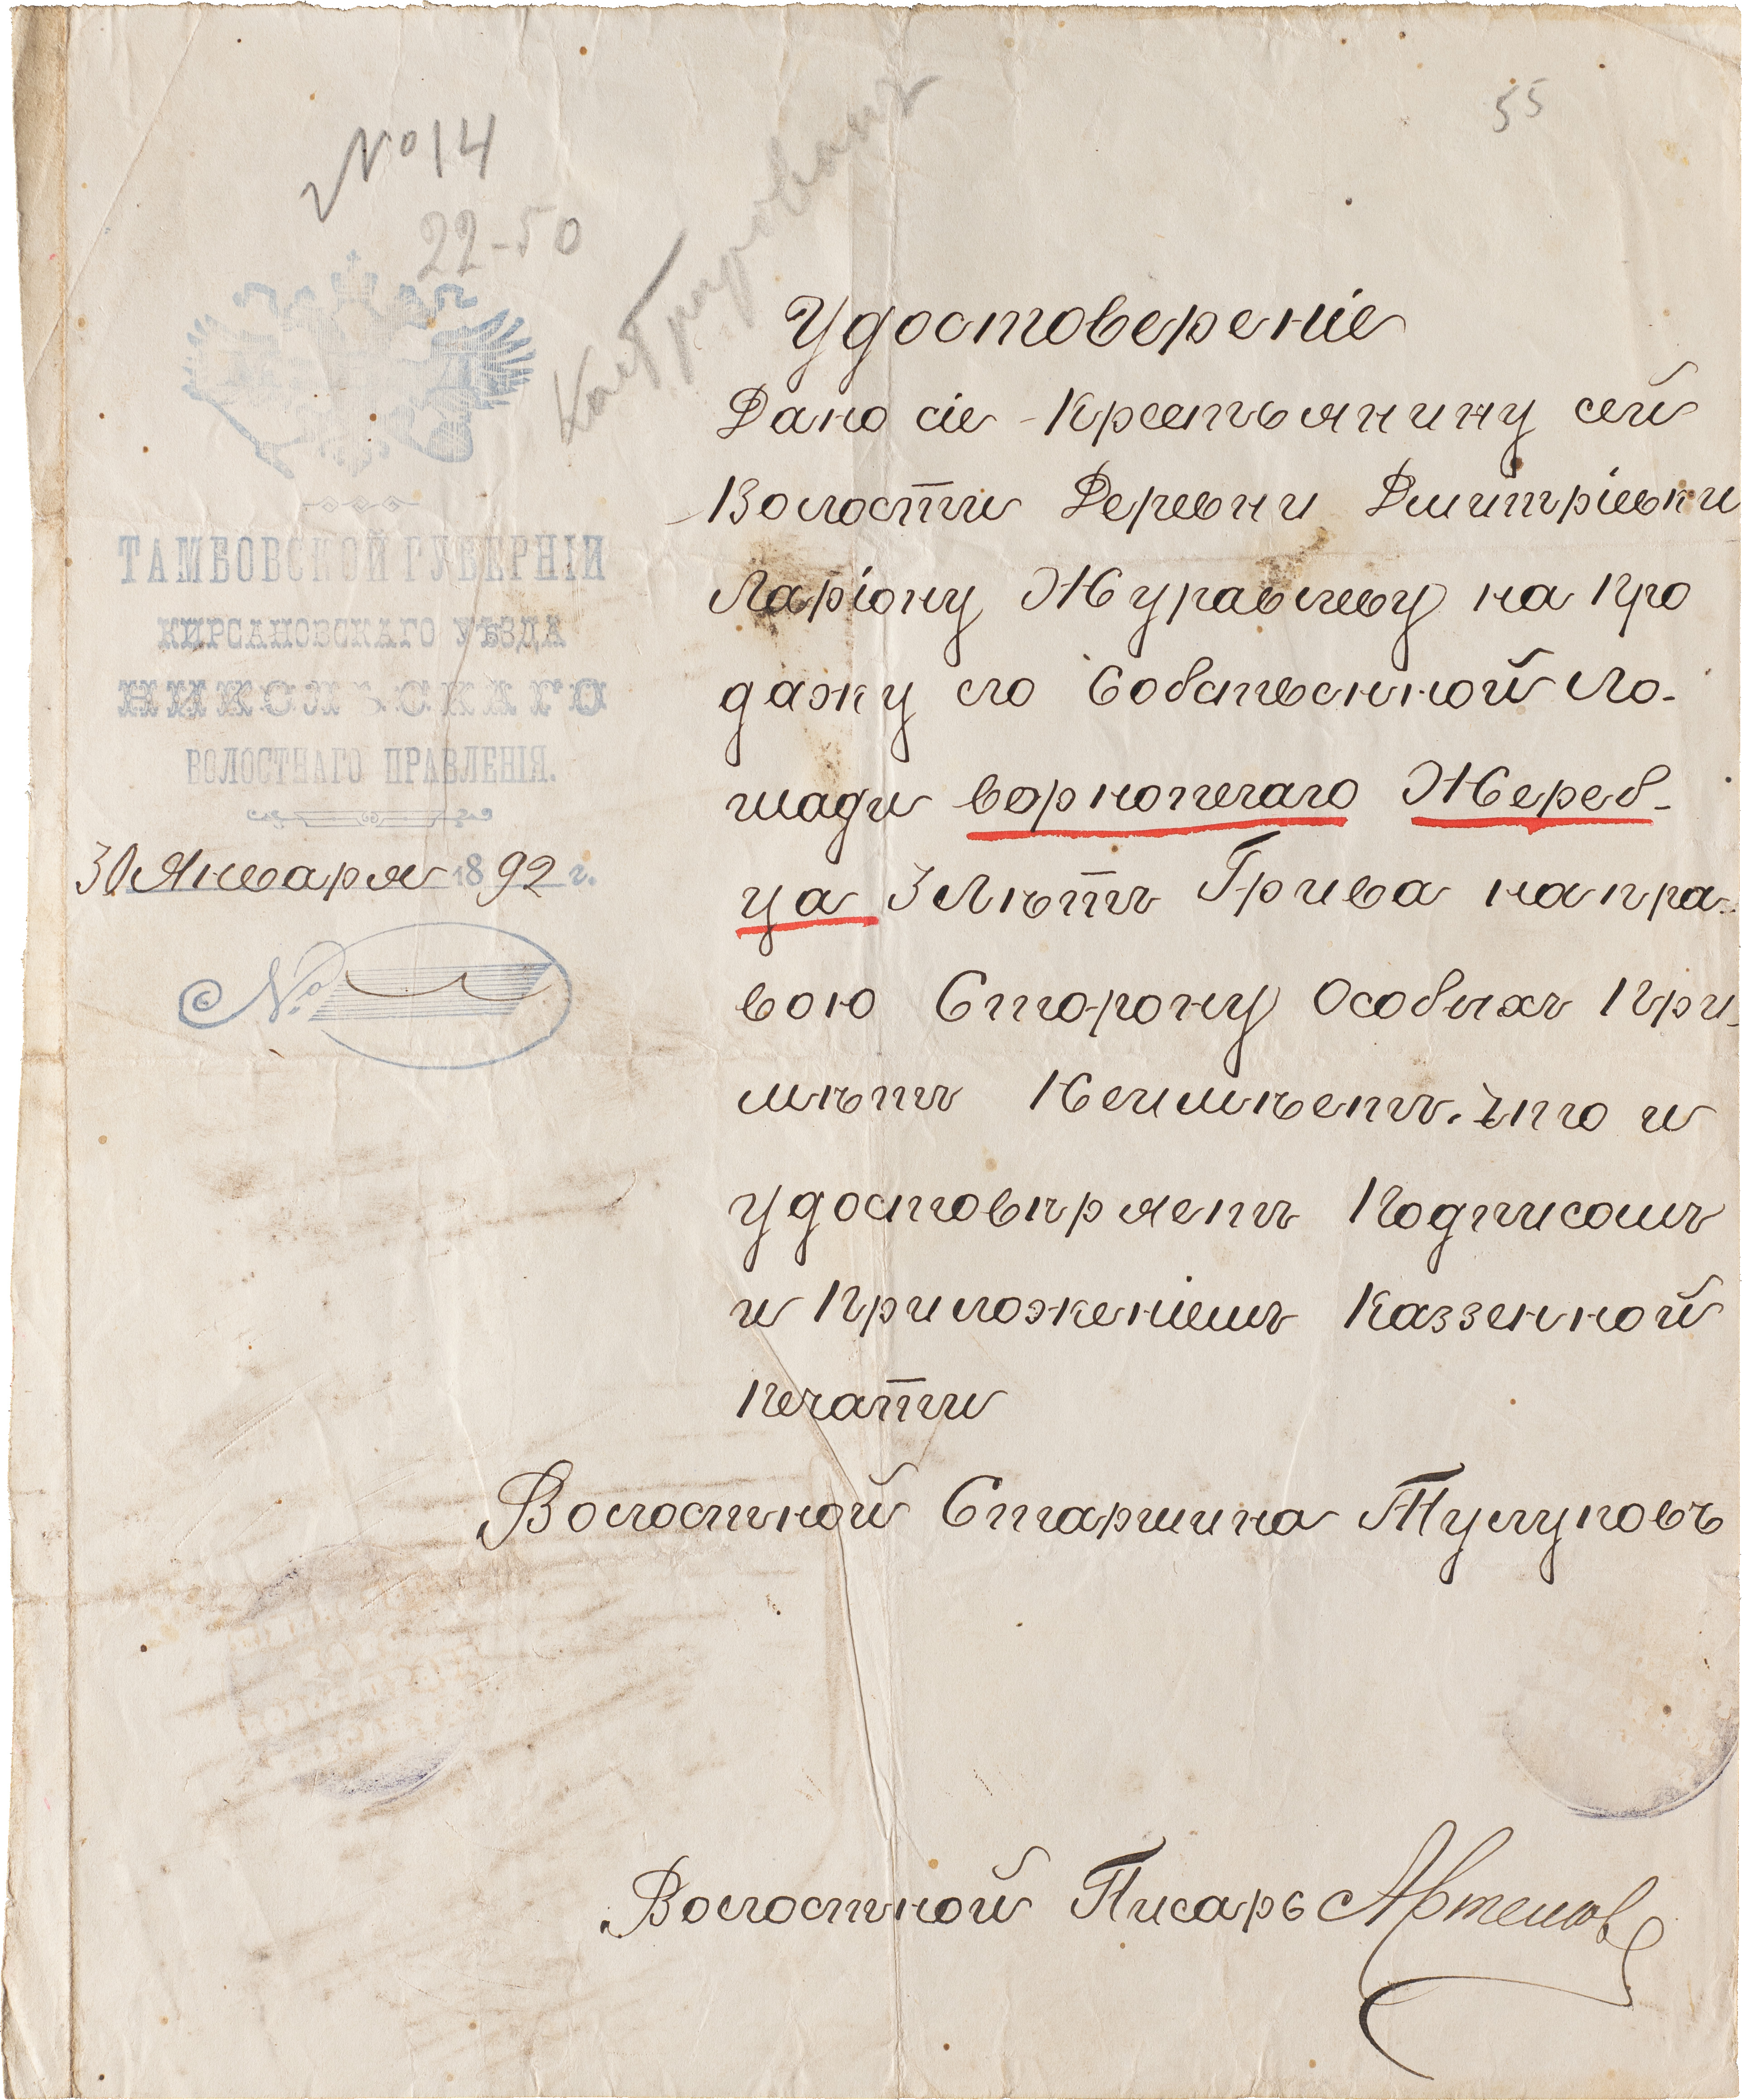 № 14
22-50
55
ТАМБОВСКОЙ ГУБЕРНІИ
КИРСАНОВСКАГО УѢЗДА
НИКОЛЬСКАГО
ВОЛОСТНАГО ПРАВЛЕНІЯ.
30 Января 1892 г.
№
Удостовереніе
Дано сіе Крестьянину сей
Волости Деревни Дмитріевки
Ларіону Журавлеву на про
дажу его Собственной Ло-
шади воронопегаго Жереб-
ца 3 Лѣтъ Грива на пра-
вою Сторону Особыхъ При-
мѣтъ Неимѣетъ. что и
удостовѣряетъ Подписомъ
и Приложеніемъ Каззенной
Печати
Волостной Старшина Тулуповъ
Волостной Писарь Артемов